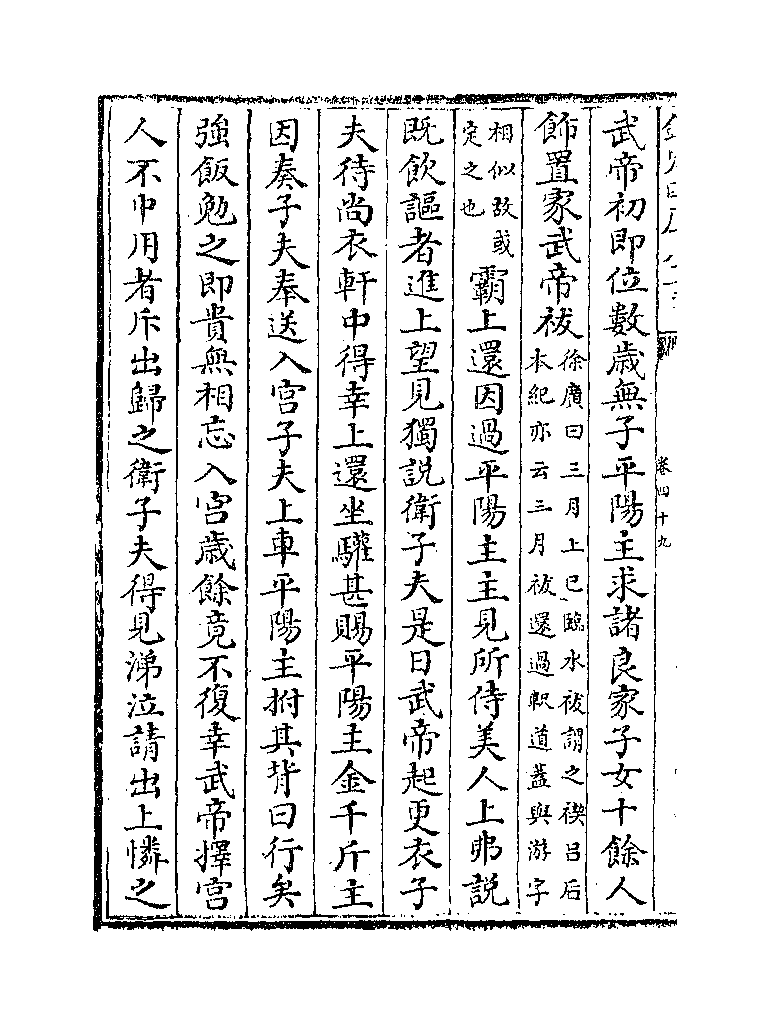 卷四十九
武帝初即位數歲無子平陽主求諸良家子女十餘人
飾置家武帝祓徐廣曰三月上巳臨水祓謂之禊呂后
本紀亦云三月祓還過軹道蓋與游字
相似故或
定之也
霸上還因過平陽主主見所侍美人上弗説
既飲謳者進上望見獨説衛子夫是日武帝起更衣子
夫待尚衣軒中得幸上還坐驩甚賜平陽主金千斤主
因奏子夫奉送入宮子夫上車平陽主拊其背曰行矣
強飯勉之即貴無相忘入宮歲餘竟不復幸武帝擇宮
人不中用者斥出歸之衛子夫得見涕泣請出上憐之